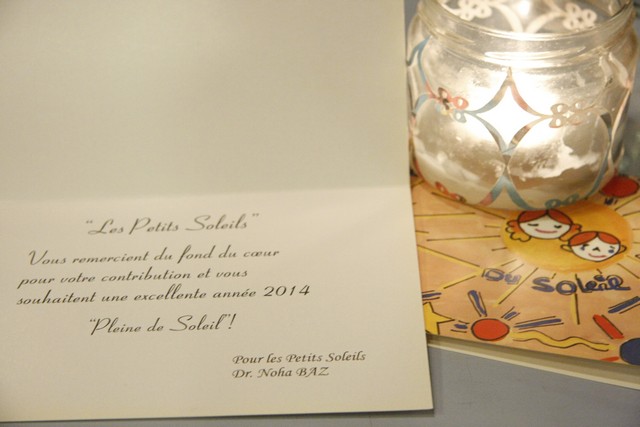 “Les Petits Soleils”
Vous remercient du fond du cœur
pour votre contribution et vous
souhaitent une excellente année 2014
“Pleine de Soleil”!
Pour les Petits Soleils
Dr. Noha BAZ
Du Soleil